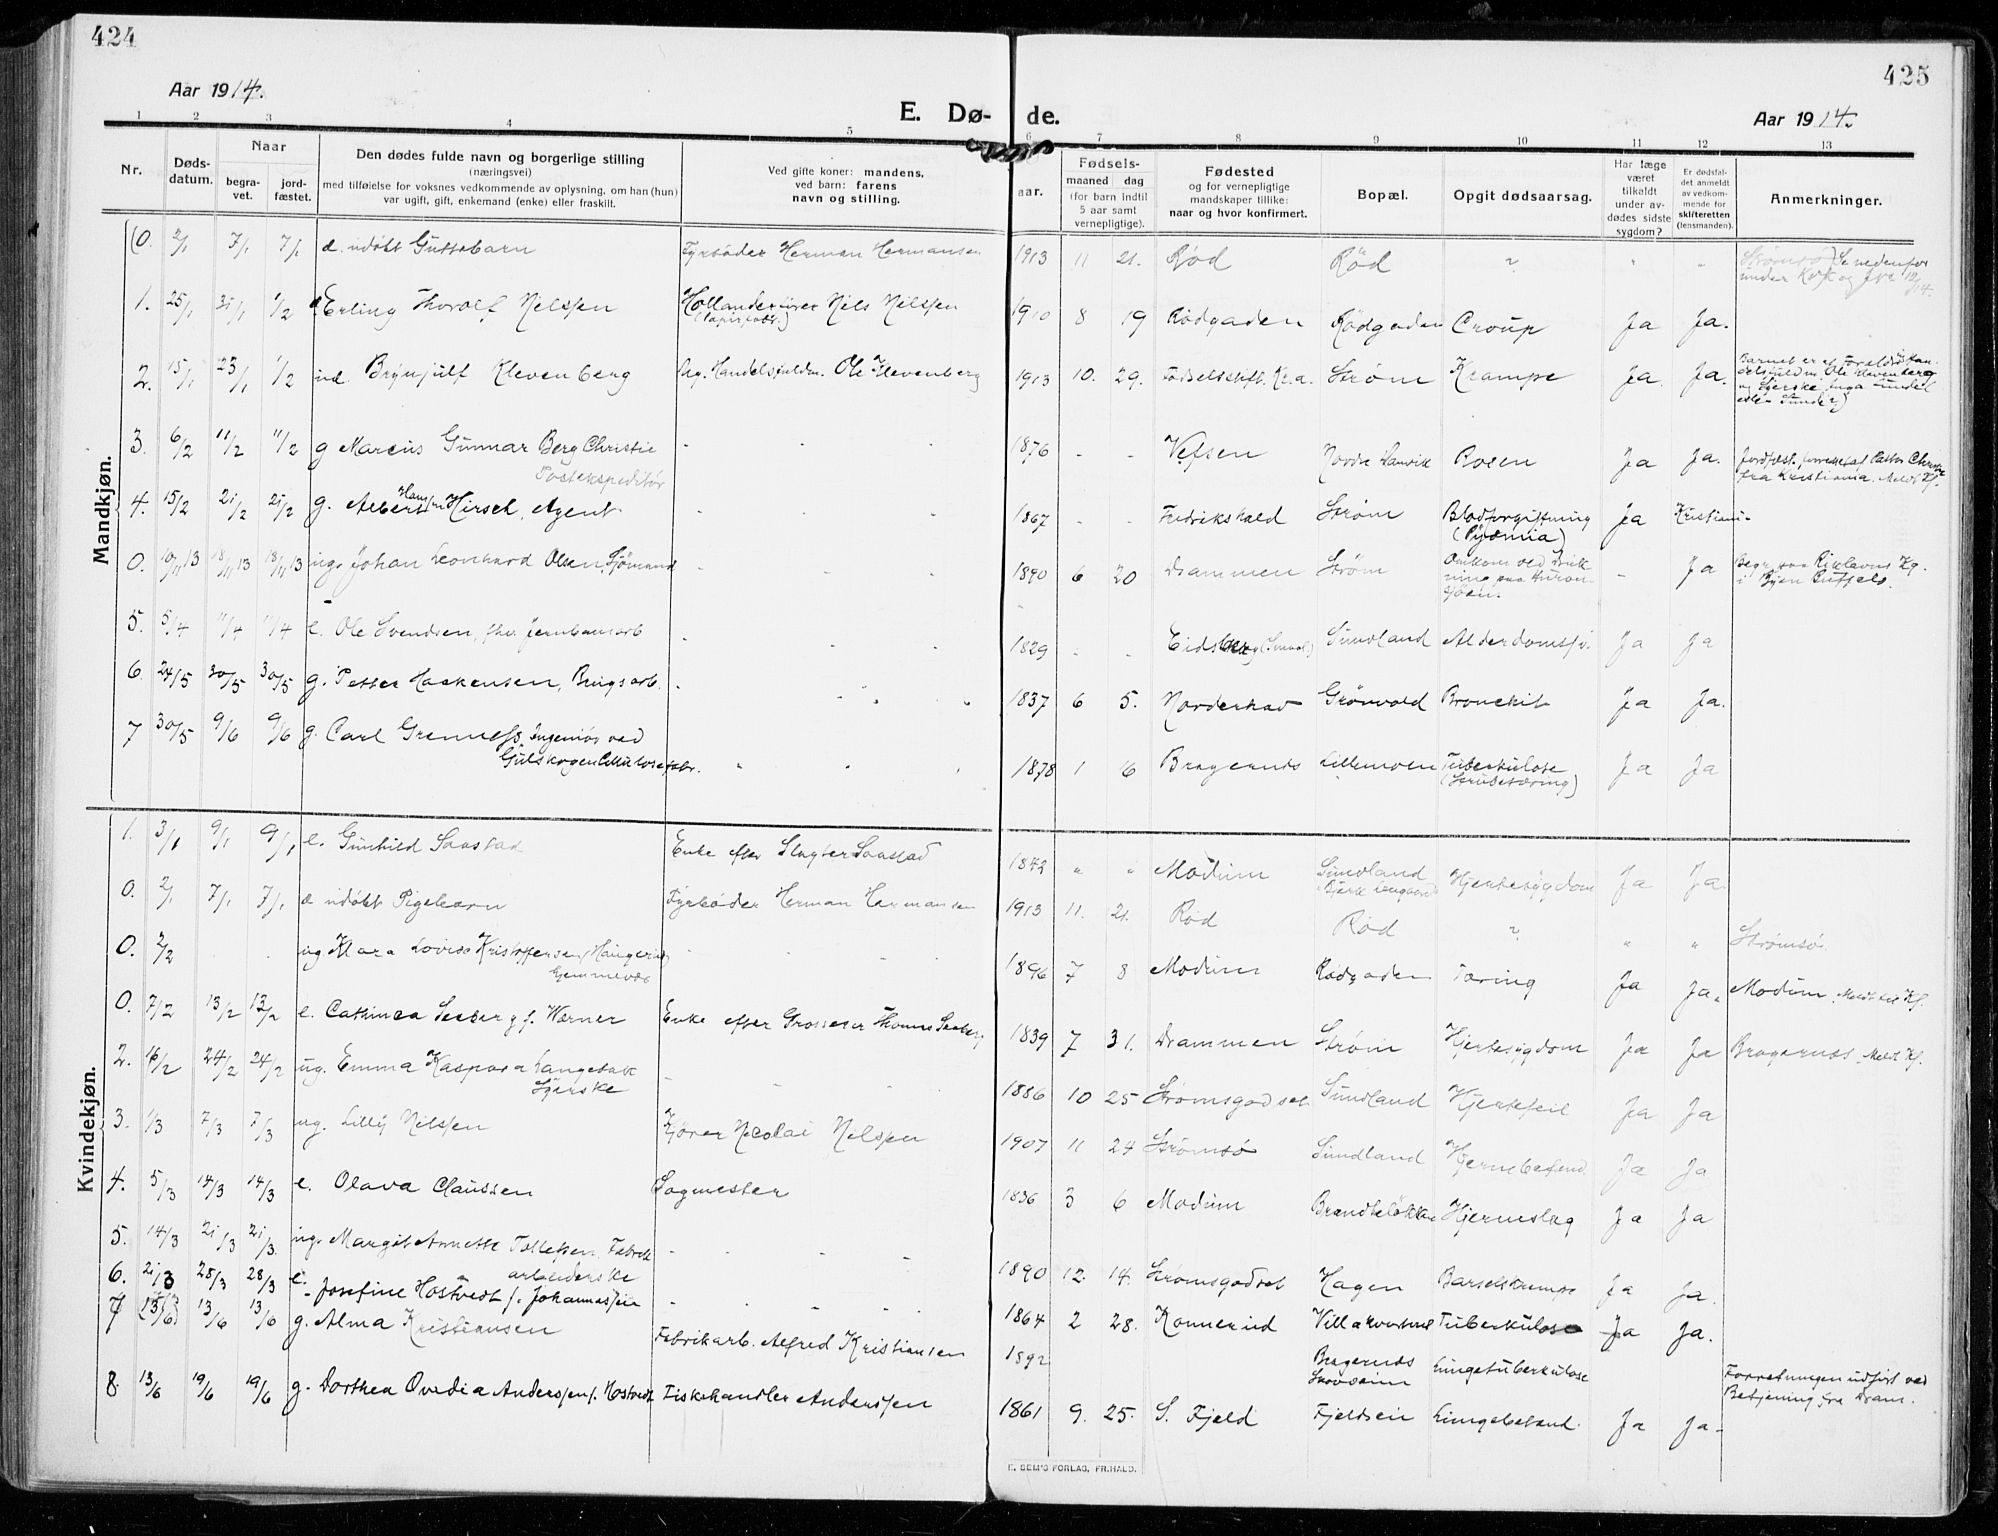 424
425
Aar 1914.
E. Dø- de.
Aar 1914.
1 2 3 4 5 6 7 8 9 10 11 12 13
Nr.
Døds-
datum.
Naar
begra-
vet.
jord-
fæstet.
Den dødes fulde navn og borgerlige stilling
(næringsvei)
med tilføielse for voksnes vedkommende av oplysning, om han (hun)
var ugift, gift, enkemand (enke) eller fraskilt.
Ved gifte koner: mandens,
ved barn: farens
navn og stilling.
aar.
Fødsels-
maaned dag
(for barn indtil
5 aar samt
vernepligtige).
Fødested
og for vernepligtige
mandskaper tillike:
naar og hvor konfirmert.
Bopæl.
Opgit dødsaarsag.
Har læge
været
tilkaldt
under av-
dødes sidste
sygdom?
Er dødsfal-
det anmeldt
av vedkom-
mende for
skifteretten
(lensmanden).
Anmerkninger.
Mandkjøn.
0. 2/1 7/1 7/1 d. udøbt Guttebarn Fyrbøder Herman Hermansen 1913 11 21. Rød Rød " " Strømsø) Se nedenfor
1. 25/1 31/1 1/2 Erling Thorolf Nilssen Hollenderfører Nils Nilssen 1910 8 19 Rødgaden Rødgaden Croup Ja Ja.
(Papirfabr.)
2. 15/1 23/1 1/2 Brynjulf Klevenberg Handelsfuldm. Ole Klevenberg 1913 10. 29. Fødselsstift. Kr.a. Strøm Krampe Ja. Ja. Barnet er
3. 6/2 11/2 11/2 g Marcus Gunnar Berg Christie - - - 1876 - - Vefsen Nordre Rosen Ja Ja. Jordfæst. forrettet af
Postekspeditør fra Kristiania. Meldt Kf.
4. 15/2 21/2 21/2 g. Albert Hirsch, Agent 1867 - - Fredrikshald Strøm Blodforgiftning Ja Kristiani-
Hans
(Pyæmia)
0. 10/11 13 18/11 13 18/11 13 ug. Johan Leonhard Olsen Sjømand - - - 1890 6 20 Drammen Strøm Omkom ved - Ja
5. 5/4 11/4 11/4 e. Ole Svendsen, fhv. Jernbanearb - - - 1829 - - Eidsberg Sundland Alderdomssv. Ja Ja
6. 24/5 30/5 30/5 g. Petter Haakensen, Brugsarb. - 1837 6 5. Norderhov Grønvold Bronchit Ja Ja.
7 30/5 9/6 9/6 g. Carl Grenness, Ingeniør ved 1878 1 16 Bragernes Lillemoen Tuberkulose Ja Ja
Gulskogen Cellulosefabr. (Strubetæring)
Kvindekjøn.
1. 3/1 9/1 9/1 e. Gunhild Saastad Enke efter Slagter Saastad 1842 " " Modum Sundland Hjertesygdom Ja Ja.
0. 2/1 7/1 7/1 d udøbt Pigebarn Fyrbøder Herman Hermansen 1913 11. 21. Rød Rød " " Strømsø.
0. 2/2 . . ug Klara Lovise Kristoffersen - - - 1896 7 8 Modum Rødgaden Tæring Ja Ja. Modum. Meldt til Kf.
Hjemmevær
0. 7/2 13/2 13/2 e. Cathinca Seeberg f. Wærner Enke efter Grosserer Thomas Seeberg 1839 7 31. Drammen Strøm Hjertesygdom Ja Ja Bragernes. Meldt Kf.
2. 16/2 24/2 24/2 ug. Emma Kaspara Langebak - - - 1886 10 25 Strømsgodset Sundland Hjertefeil Ja Ja
Syerske
3. 1/3 7/3 7/3 ug. Lilly Nilssen Kjører Nicolai Nilssen 1907 11 24 Strømsø Sundland Ja Ja
4. 5/3 14/3 14/3 e. Olava Claussen Sagmester 1836 3 6 Modum Brandteløkken Hjerneslag Ja Ja
5. 14/3 21/3 21/3. ug. Margit Annette Tollefsen. Fabrik- - - - 1890 12. 14. Strømsgodset Hagen Barselskrampe Ja Ja.
arbeiderske
6. 21/3 28/3 28/3 e. Josefine Hostvedt f. Johannessen - - - 1864 2 28. Konnerud Villa Tuberkulose Ja Ja.
7 13/6 13/6 g. Alma Kristiansen Fabrikarb. Alfred Kristiansen 1892 Bragernes Lungetuberkulose Forretningen utført ved
Betjening fra Dram.
8. 13/6 19/6 19/6 g. Dorthea Ovedia Anderssen f. Hostvedt Fiskehandler Anderssen 1861 9. 25. S. Fjeld Fjeldsein Lungebetænd. Ja Ja-
E. SEM'S FORLAG, FR.HALD.